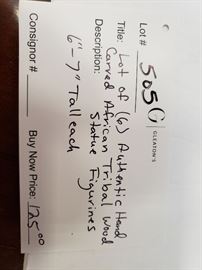 Lot # 505 G | GLEATON'S
Title: Lot of (6) Authentic Hand
Carved African Tribal Wood
Statue Figurines
Description:
6"-7" Tall each
Consignor #
Buy Now Price: 125.00